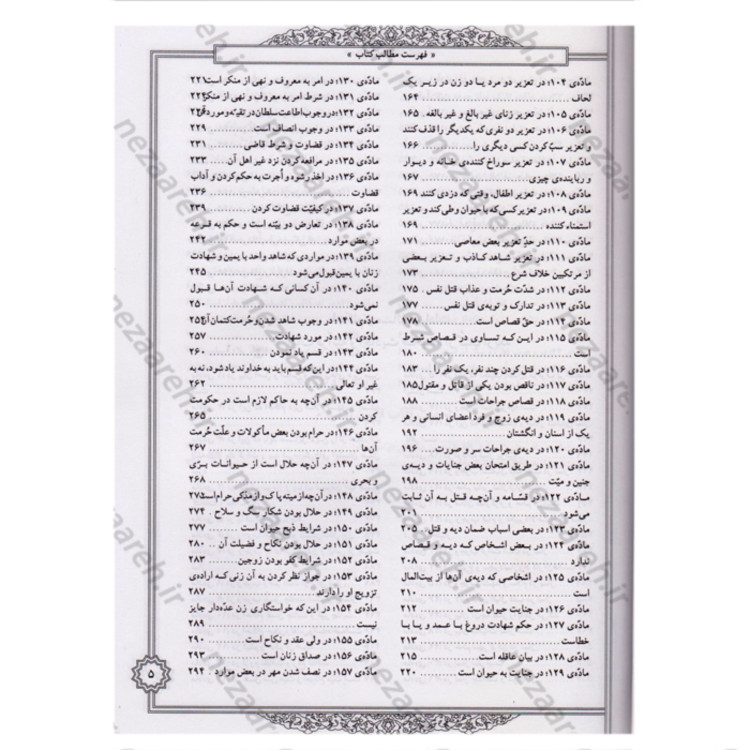 « فهرست مطالب کتاب »
مادّه‌ی ۱۰۴: در تعزیر دو مرد یـا دو زن در زیـر یک
لحاف ........ ۱۶۴
مادّه‌ی ۱۰۵: در تعزیر زنای غیر بالغ و غیر بالغه. ۱۶۵
مادّه‌ی ۱۰۶: در تعزیر دو نفری که یکدیگر را قذف کنند
و تعزیر سبّ کردن کسی دیگری را ........ ۱۶۶
مادّه‌ی ۱۰۷: در تعزیر سوراخ کننده‌ی خـانه و دیـوار
و رباینده‌ی چیزی ........ ۱۶۷
مادّه‌ی ۱۰۸: در تعزیر اطفال، وقتی که دزدی کنند ۱۶۹
مادّه‌ی ۱۰۹: در تعزیر کسی که با حیوان وطی کند و تعزیر
استمناء کننده ........ ۱۶۹
مادّه‌ی ۱۱۰: در حدّ تعزیر بعض معاصی ........ ۱۷۱
مادّه‌ی ۱۱۱: در تعزیر شـاهد کـاذب و تـعزیر بـعضی
از مرتکبین خلاف شرع ........ ۱۷۳
مادّه‌ی ۱۱۲: در شدّت حُرمت و عذاب قتل نفس . ۱۷۵
مادّه‌ی ۱۱۳: در تدارک و توبه‌ی قتل نفس ........ ۱۷۷
مادّه‌ی ۱۱۴: در حقّ قصاص است ........ ۱۷۸
مادّه‌ی ۱۱۵: در ایـن کـه تسـاوی در قـصاص شـرط
است ........ ۱۸۰
مادّه‌ی ۱۱۶: در قتل کردن چند نفر، یک نفر را ... ۱۸۳
مادّه‌ی ۱۱۷: در ناقص بودن یکی از قاتل و مقتول ۱۸۵
مادّه‌ی ۱۱۸: در قصاص جراحات است ........ ۱۸۸
مادّه‌ی ۱۱۹: در دیه‌ی زوج و فرد اعضای انسانی و هر
یک از اسنان و انگشتان ........ ۱۹۲
مادّه‌ی ۱۲۰: در دیه‌ی جراحات سر و صورت ........ ۱۹۶
مادّه‌ی ۱۲۱: در طریق امتحان بعض جنایات و دیـه‌ی
جنین و میّت ........ ۱۹۸
مـادّه‌ی ۱۲۲: در قسّامه و آن‌چـه قـتل بـه آن ثـابت
می‌شود ........ ۲۰۱
مادّه‌ی ۱۲۳: در بعضی اسباب ضمان دیه و قتل . ۲۰۵
مادّه‌ی ۱۲۴: در بـعض اشـخاص کـه دیـه و قـصاص
ندارد ........ ۲۰۸
مادّه‌ی ۱۲۵: در اشخاصی که دیه‌ی آن‌ها از بیت‌المال
است ........ ۲۱۰
مادّه‌ی ۱۲۶: در جنایت حیوان است ........ ۲۱۲
مادّه‌ی ۱۲۷: در حکم شهادت دروغ بـا عـمد و یـا بـا
خطاست ........ ۲۱۳
مادّه‌ی ۱۲۸: در بیان عاقله است ........ ۲۱۵
مادّه‌ی ۱۲۹: در جنایت به حیوان است ........ ۲۲۰
مادّه‌ی ۱۳۰: در امر به معروف و نهی از منکر است ۲۲۱
مادّه‌ی ۱۳۱: در شرط امر به معروف و نهی از منکر ۲۲۴
مادّه‌ی ۱۳۲: در وجوب اطاعت سلطان در تقیّه و مورد آن
مادّه‌ی ۱۳۳: در وجوب انصاف است ........ ۲۲۹
مادّه‌ی ۱۳۴: در قضاوت و شرط قاضی ........ ۲۳۱
مادّه‌ی ۱۳۵: در مرافعه کردن نزد غیر اهل آن ... ۲۳۳
مادّه‌ی ۱۳۶: در اخذ رشوه و اُجرت به حکم کردن و آداب
قضاوت ........ ۲۳۶
مادّه‌ی ۱۳۷: در کیفیّت قضاوت کردن ........ ۲۳۹
مادّه‌ی ۱۳۸: در تعارض دو بیّنه است و حکم به قـرعه
در بعض موارد ........ ۲۴۲
مادّه‌ی ۱۳۹: در مواردی که شاهد واحد با یمین و شهادت
زنان با یمین قبول می‌شود ........ ۲۴۵
مادّه‌ی ۱۴۰: در آن کسانی کـه شـهادت آن‌هـا قـبول
نمی‌شود ........ ۲۵۰
مادّه‌ی ۱۴۱: در وجوب شاهد شدن و حُرمت کتمان آن ۲۵۴
مادّه‌ی ۱۴۲: در مورد شهادت ........ ۲۵۷
مادّه‌ی ۱۴۳: در قسم یاد نمودن ........ ۲۶۰
مادّه‌ی ۱۴۴: در این که قسم باید به خداوند یاد شود، نه به
غیر او تعالی ........ ۲۶۲
مادّه‌ی ۱۴۵: در آن‌چه به حاکم لازم است در حکومت
کردن ........ ۲۶۵
مادّه‌ی ۱۴۶: در حرام بودن بعض مأکولات و علّت حُرمت
آن‌ها ........ ۲۶۷
مادّه‌ی ۱۴۷: در آن‌چه حلال است از حیـوانـات بـرّی
و بحری ........ ۲۶۸
مادّه‌ی ۱۴۸: در آن‌چه از میته پاک و از مذکی حرام است ۲۷۲
مادّه‌ی ۱۴۹: در حلال بودن شکار سگ و سلاح . ۲۷۴
مادّه‌ی ۱۵۰: در شرایط ذبح حیوان است ........ ۲۷۷
مادّه‌ی ۱۵۱: در حلال بودن نکاح و فضیلت آن .. ۲۸۰
مادّه‌ی ۱۵۲: در شرایط کفو بودن زوجین ........ ۲۸۳
مادّه‌ی ۱۵۳: در جواز نظر کردن به آن زنی کـه اراده‌ی
تزویج او را دارند ........ ۲۸۷
مادّه‌ی ۱۵۴: در این که خواستگاری زن عدّه‌دار جایز
نیست ........ ۲۸۹
مادّه‌ی ۱۵۵: در ولی عقد و نکاح است ........ ۲۹۰
مادّه‌ی ۱۵۶: در صداق زنان است ........ ۲۹۳
مادّه‌ی ۱۵۷: در نصف شدن مهر در بعض موارد . ۲۹۴
۵
nezaareh.ir